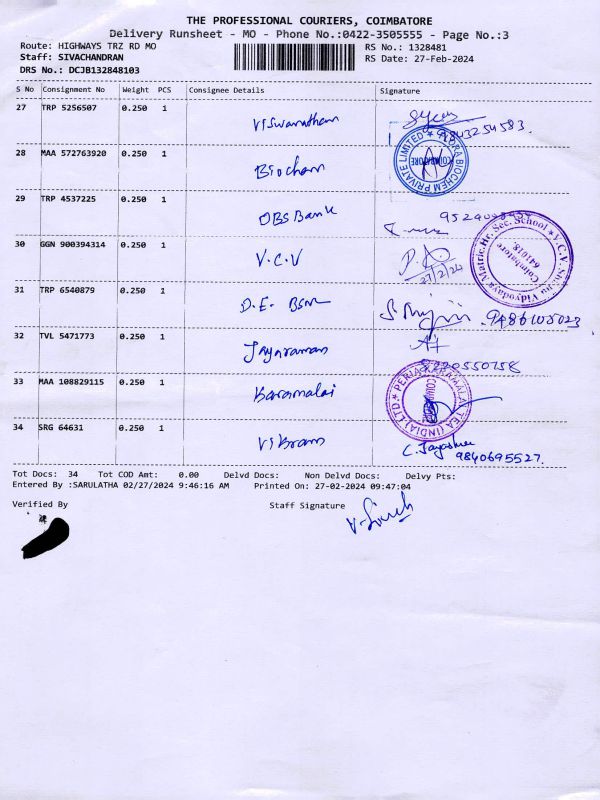 THE PROFESSIONAL COURIERS, COIMBATORE
Delivery Runsheet - MO - Phone No.:0422-3505555 - Page No.:3
Route: HIGHWAYS TRZ RD MO RS No.: 1328481
Staff: SIVACHANDRAN RS Date: 27-Feb-2024
DRS No.: DCJB132848103
S No Consignment No Weight PCS Consignee Details Signature
27 TRP 5256507 0.250 1 Viswanatham
28 MAA 572763920 0.250 1 Biochem
BIOCHEM PRIVATE LIMITED
COIMBATORE
29 TRP 4537225 0.250 1 OBS Bank
30 GGN 900394314 0.250 1 V.C.V
27/2/24
V.C.V. Vidyodaya Matric. Hr. Sec. School
Coimbatore
641018.
31 TRP 6540879 0.250 1 D.E.
32 TVL 5471773 0.250 1 Jayaraman
33 MAA 108829115 0.250 1 Karamalai
PERIA KARAMALAI TEA (INDIA) LTD.
34 SRG 64631 0.250 1 Vikram C. Jayashree
9840695527.
Tot Docs: 34 Tot COD Amt: 0.00 Delvd Docs: Non Delvd Docs: Delvy Pts:
Entered By :SARULATHA 02/27/2024 9:46:16 AM Printed On: 27-02-2024 09:47:04
Verified By Staff Signature